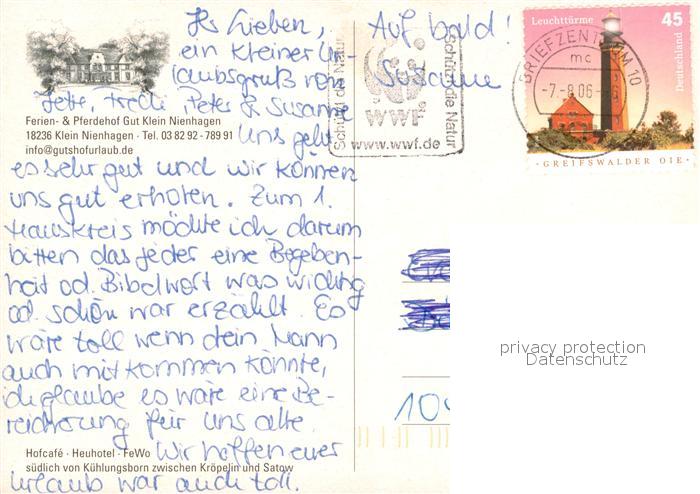 Ihr Lieben,
ein kleiner Ur-
laubsgruß von
Peter & Susanne
Ferien- & Pferdehof Gut Klein Nienhagen
18236 Klein Nienhagen · Tel. 03 82 92 - 789 91
info@gutshofurlaub.de
Uns geht
es sehr gut und wir können
uns gut erholen. Zum 1.
Hauskreis möchte ich darum
bitten das jeder eine Begeben-
heit od. Bibelwort was wichtig
od. schön war erzählt. Es
wäre toll wenn dein Mann
auch mitkommen könnte,
ich glaube es wäre eine Be-
reicherung für uns alle.
Wir hoffen euer
Urlaub war auch toll.
Hofcafé · Heuhotel · FeWo
südlich von Kühlungsborn zwischen Kröpelin und Satow
Auf bald!
Susanne
Schützt die Natur
WWF
www.wwf.de
Schützt die Natur
BRIEFZENTRUM 10
mc
-7.-8.06-
Leuchttürme
45
Deutschland
· GREIFSWALDER OIE ·
10
privacy protection
Datenschutz